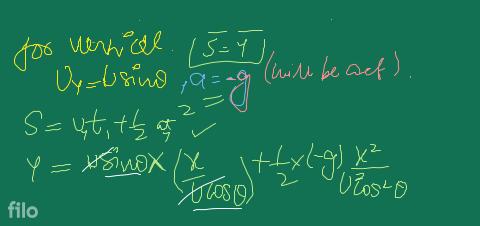 for vertical. [S=Y]
Uy=Usinθ, a=-g (will be act).
S = uyt, + 1/2 ay t² ✓
Y = Usinθ x (x/Ucosθ) + 1/2 x (-g) x²/U²cos²θ
filo